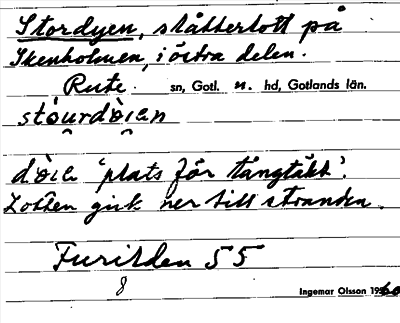 Stordyen, slåtterlott på
Skenholmen, i östra delen.
Rute sn, Gotl. n. hd, Gotlands län.
stòu̯rdò̯iɛn
dò̯iɛ 'plats för tångtäkt'.
Lotten gick ner till stranden.
Furilden 55
8
Ingemar Olsson 1960